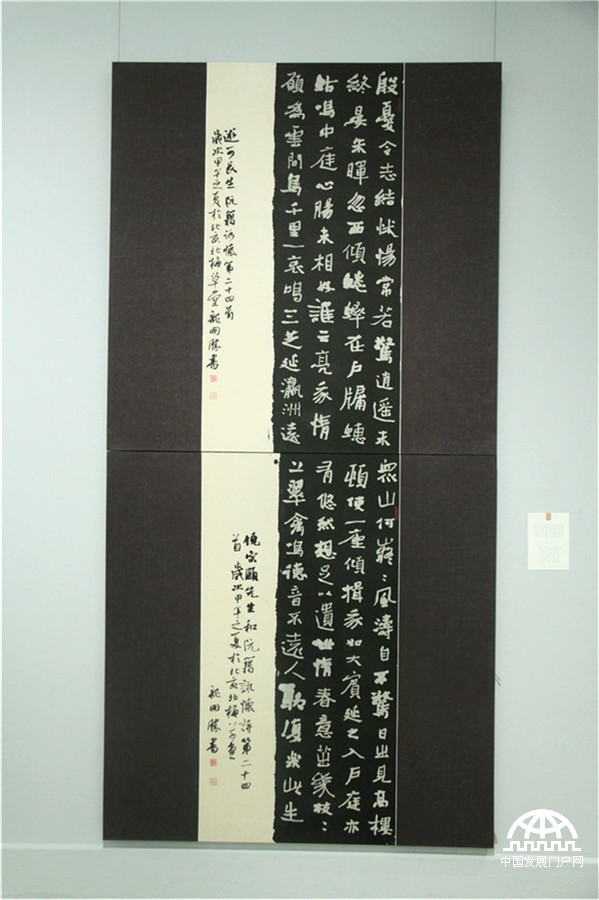 殷憂令志結怵惕常若驚逍遥未
終晏朱暉忽西傾蟋蟀在戶牖蟪
蛄鳴中庭心腸未相好誰云亮我情
願為雲間鳥千里一哀鳴三芝延瀛洲遠
遊可長生 阮籍詠懷第二十四首
歲次甲午之夏於北京 草堂 龍開勝書
衆山何 風濤自不驚日出見高樓
頓使一座傾揖我如大賓延之入戶庭亦
有悠然想足以遺世情春意茁 枝〻
上翠禽鳴德音不遠人聊復樂此生
饒宗頤先生和阮籍詠懷詩第二十四
首 歲次甲午之夏於北京
龍開勝書
中国发展门户网